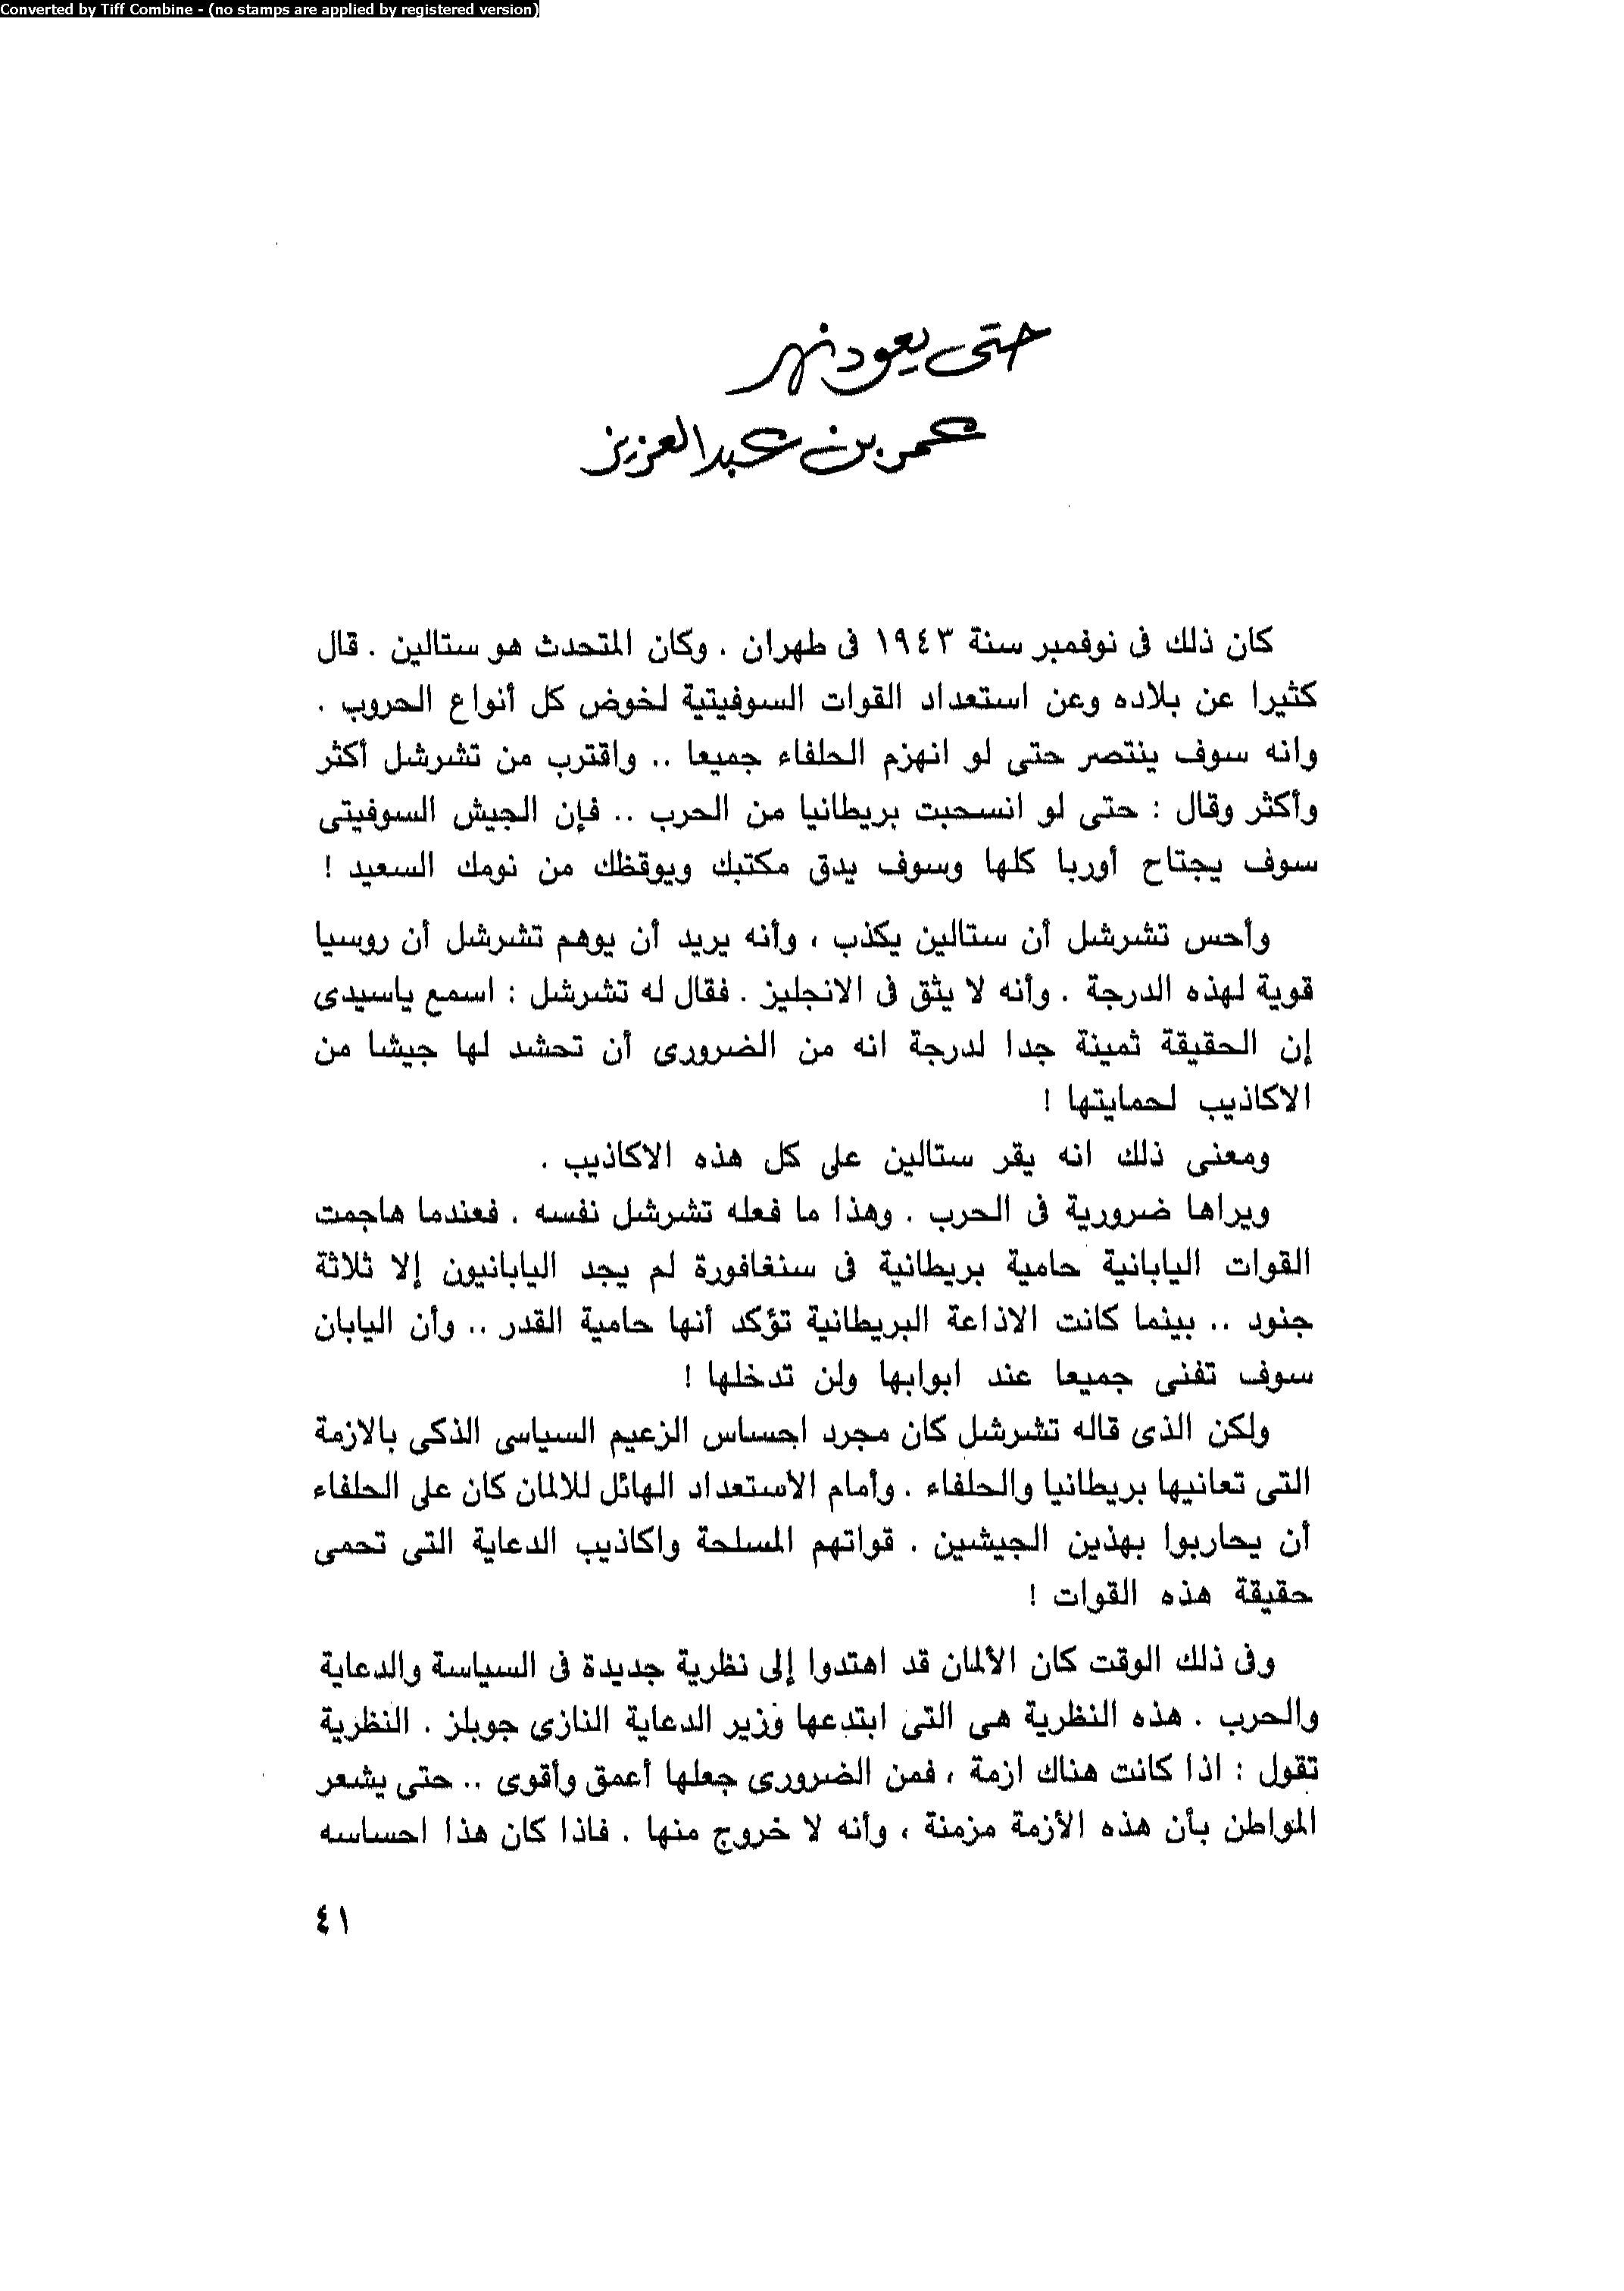 Converted by Tiff Combine - (no stamps are applied by registered version)
حتى يعود نهر
عمر بن عبد العزيز
كان ذلك فى نوفمبر سنة ١٩٤٣ فى طهران . وكان المتحدث هو ستالين . قال
كثيرا عن بلاده وعن استعداد القوات السوفيتية لخوض كل أنواع الحروب .
وانه سوف ينتصر حتى لو انهزم الحلفاء جميعا .. واقترب من تشرشل أكثر
وأكثر وقال : حتى لو انسحبت بريطانيا من الحرب .. فإن الجيش السوفيتى
سوف يجتاح أوربا كلها وسوف يدق مكتبك ويوقظك من نومك السعيد !
وأحس تشرشل أن ستالين يكذب ، وأنه يريد أن يوهم تشرشل أن روسيا
قوية لهذه الدرجة . وأنه لا يثق فى الانجليز . فقال له تشرشل : اسمع ياسيدى
إن الحقيقة ثمينة جدا لدرجة انه من الضرورى أن تحشد لها جيشا من
الاكاذيب لحمايتها !
ومعنى ذلك انه يقر ستالين على كل هذه الاكاذيب .
ويراها ضرورية فى الحرب . وهذا ما فعله تشرشل نفسه . فعندما هاجمت
القوات اليابانية حامية بريطانية فى سنغافورة لم يجد اليابانيون إلا ثلاثة
جنود .. بينما كانت الاذاعة البريطانية تؤكد أنها حامية القدر .. وأن اليابان
سوف تفنى جميعا عند ابوابها ولن تدخلها !
ولكن الذى قاله تشرشل كان مجرد احساس الزعيم السياسى الذكى بالازمة
التى تعانيها بريطانيا والحلفاء . وأمام الاستعداد الهائل للالمان كان على الحلفاء
أن يحاربوا بهذين الجيشين . قواتهم المسلحة واكاذيب الدعاية التى تحمى
حقيقة هذه القوات !
وفى ذلك الوقت كان الألمان قد اهتدوا إلى نظرية جديدة فى السياسة والدعاية
والحرب . هذه النظرية هى التى ابتدعها وزير الدعاية النازى جوبلز . النظرية
تقول : اذا كانت هناك ازمة ، فمن الضرورى جعلها أعمق وأقوى .. حتى يشعر
المواطن بأن هذه الأزمة مزمنة ، وأنه لا خروج منها . فاذا كان هذا احساسه
٤١